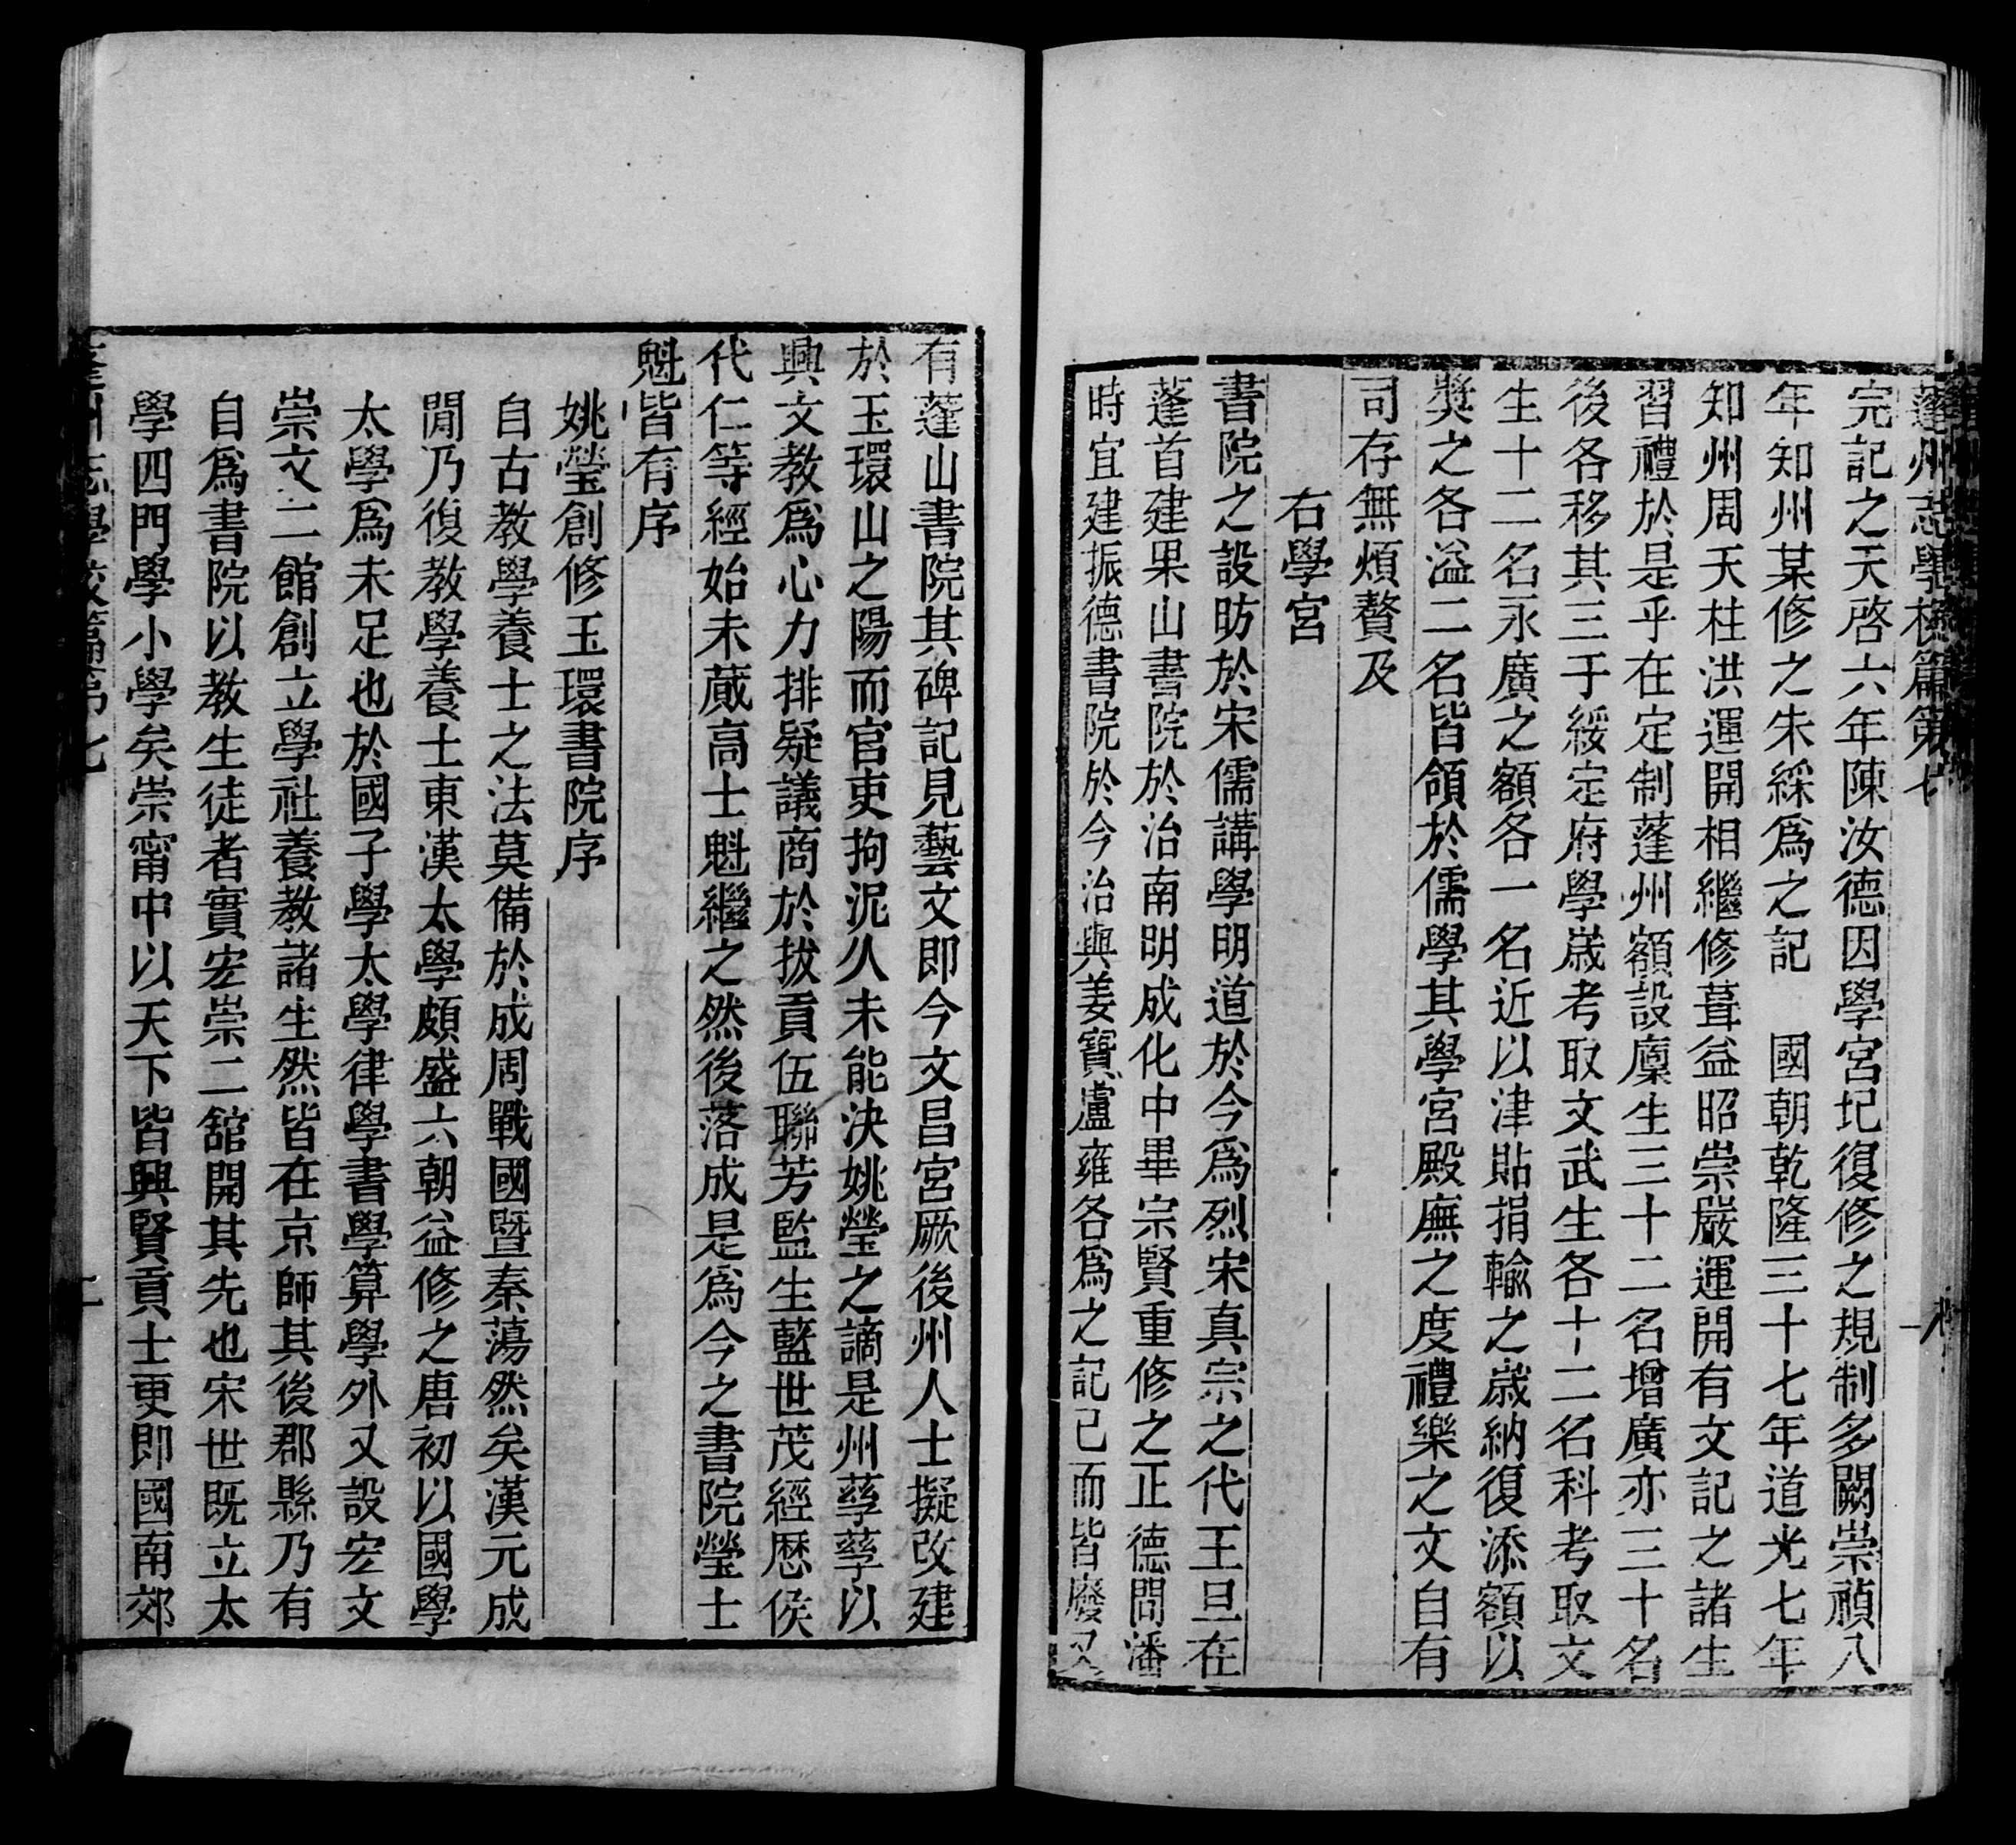 蓬州志學校篇第七
完記之天啓六年陳汝德因學宮圮復修之規制多闕崇禎八
年知州某修之朱綵爲之記　國朝乾隆三十七年道光七年
知州周天柱洪運開相繼修葺益昭崇嚴運開有文記之諸生
習禮於是乎在定制蓬州額設廩生三十二名增廣亦三十名
後各移其三于綏定府學歲考取文武生各十二名科考取文
生十二名永廣之額各一名近以津貼捐輸之歲納復添額以
獎之各溢二名皆領於儒學其學宮殿廡之度禮樂之文自有
司存無煩贅及
右學宮
書院之設昉於宋儒講學明道於今爲烈宋真宗之代王旦在
蓬首建果山書院於治南明成化中畢宗賢重修之正德間潘
時宜建振德書院於今治與姜寶盧雍各爲之記已而皆廢又
有蓬山書院其碑記見藝文即今文昌宮厥後州人士擬改建
於玉環山之陽而官吏拘泥久未能決姚瑩之謫是州孳孳以
興文教爲心力排疑議商於拔貢伍聯芳監生藍世茂經歷侯
代仁等經始未蕆高士魁繼之然後落成是爲今之書院瑩士
魁皆有序
姚瑩創修玉環書院序
自古教學養士之法莫備於成周戰國暨秦蕩然矣漢元成
閒乃復教學養士東漢太學頗盛六朝益修之唐初以國學
太學爲未足也於國子學太學律學書學算學外又設宏文
崇文二館創立學社養教諸生然皆在京師其後郡縣乃有
自爲書院以教生徒者實宏崇二舘開其先也宋世既立太
學四門學小學矣崇甯中以天下皆興賢貢士更即國南郊
蓬州志學校篇第七
二